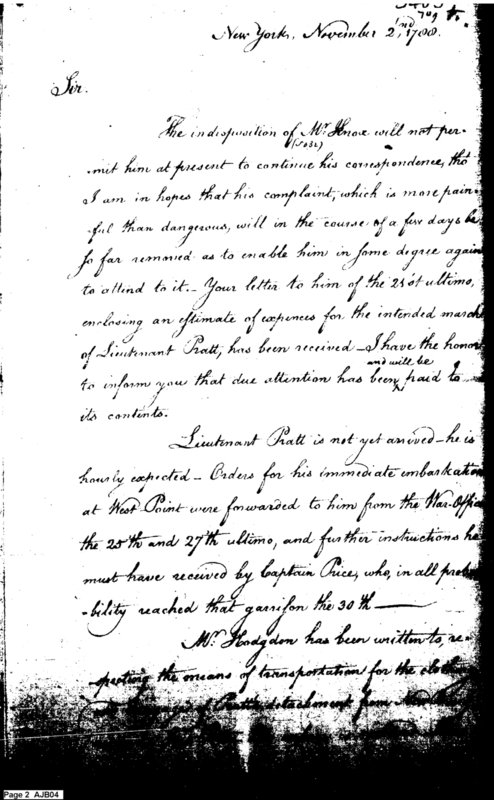 New York, November 2nd, 1788.
Sir.
The indisposition of Mr. Knox will not per-
(Josh)
-mit him at present to continue his correspondence, tho'
I am in hopes that his complaint, which is more pain-
-ful than dangerous, will in the course of a few days be
so far removed as to enable him in some degree again
to attend to it. - Your letter to him of the 21st ultimo,
enclosing an estimate of expences for the intended march
of Lieutenant Pratt, has been received - I have the honor
and will be
to inform you that due attention has been paid to
its contents.
Lieutenant Pratt is not yet arrived - he is
hourly expected - Orders for his immediate embarkation
at West Point were forwarded to him from the War-Office
the 25th and 27th ultimo, and further instructions he
must have received by Captain Price, who, in all proba-
-bility reached that garrison the 30th -
Mr. Hodgdon has been written to, re-
-specting the means of transportation for the clothing
of Pratt's detachment from New
Page 2 AJB04